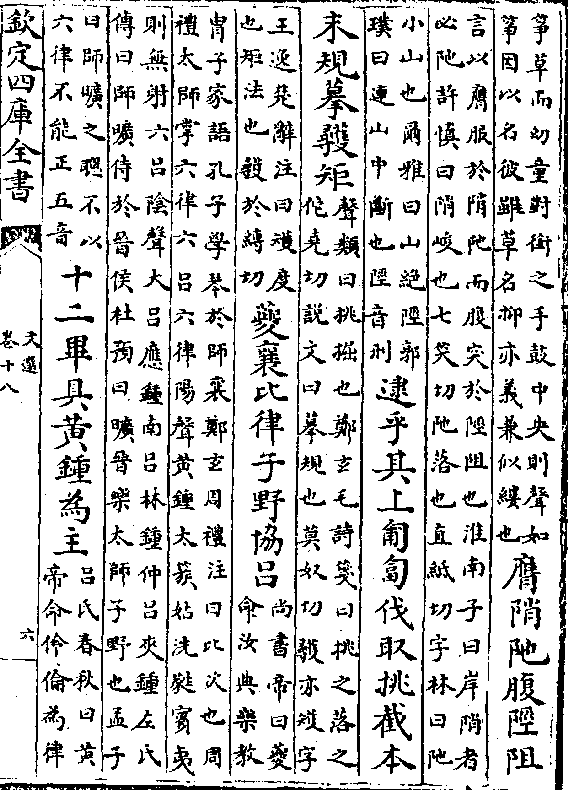 筝草而幼童對銜之手鼓中央則聲如
筝因以名彼雖草名抑亦義兼似縷也
膺陗阤腹陘阻
言以膺服於陗阤而腹突於陘阻也淮南子曰岸陗者
必阤許慎曰陗峻也七笑切阤落也直紙切字林曰阤
小山也爾雅曰山絶陘郭
璞曰連山中斷也陘音刑
逮乎其上匍匐伐取挑截本
末規摹彟矩
聲類曰挑掘也鄭玄毛詩箋曰挑之落之
佗堯切説文曰摹規也莫奴切彟亦矱字
王逸楚辭注曰矱度
也矩法也彟於縛切
夔襄比律子野協呂
尚書帝曰夔
命汝典樂教
胄子家語孔子學琴於師襄鄭玄周禮注曰比次也周
禮太師掌六律六呂六律陽聲黄鍾太蔟姑洗蕤賓夷
則無射六呂陰聲大呂應鍾南呂林鍾仲呂夾鍾左氏
傳曰師曠侍於晉侯杜預曰曠晉樂太師子野也孟子
曰師曠之聰不以
六律不能正五音
十二畢具黄鍾為主
呂氏春秋曰黄
帝命伶倫為律
欽定四庫全書
文選
卷十八
六